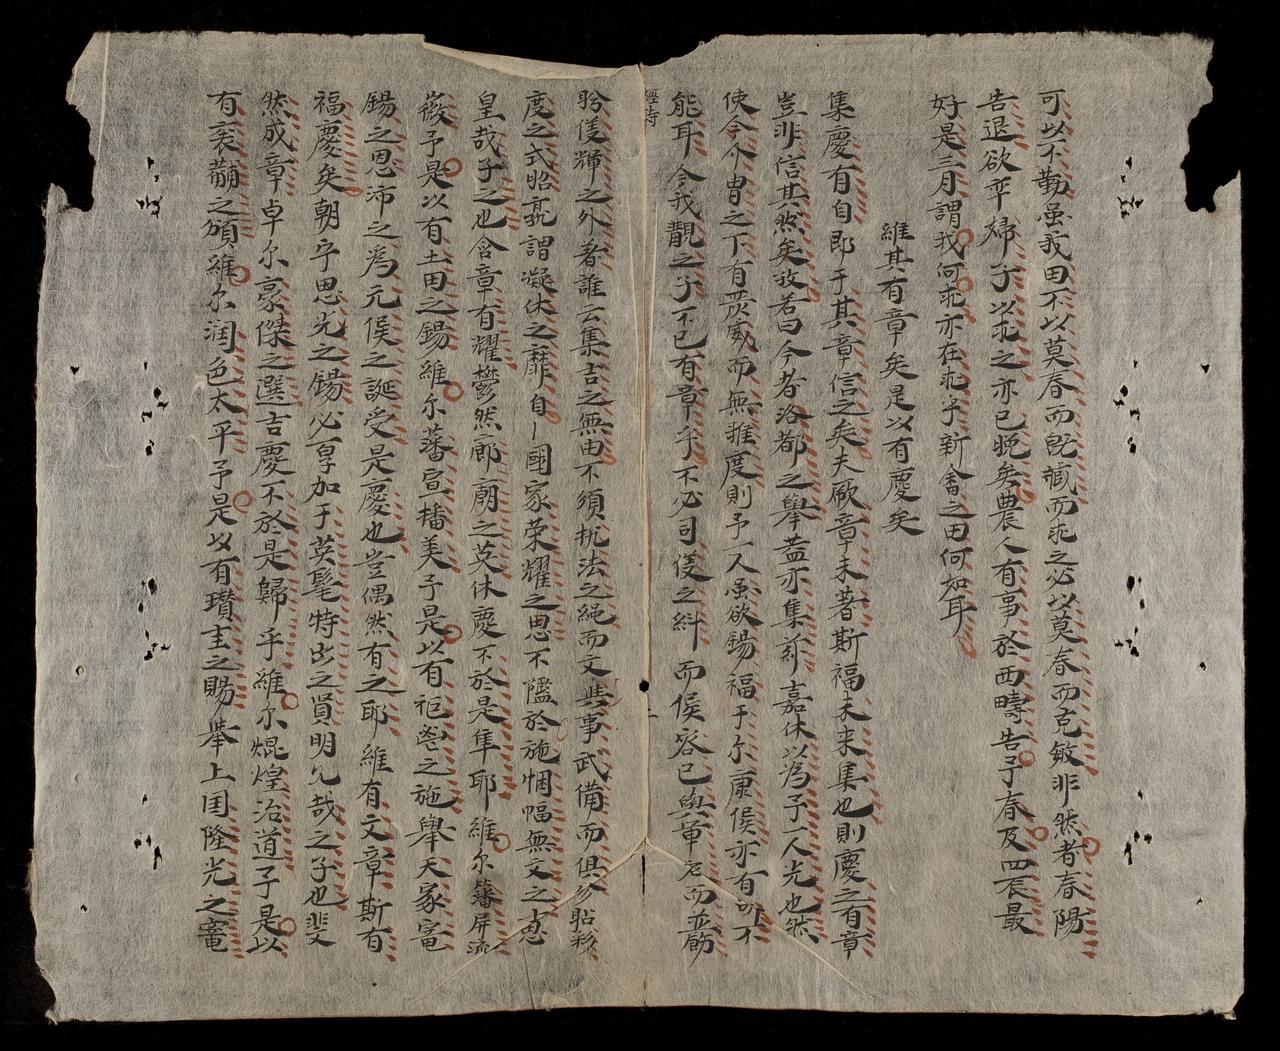 可以不勤虽我田不以莫春而旣臧而求之必以莫春而克敏非然者春陽
告退欲率婦子以求之亦已晚矣農人有事於西疇告予春及四辰最
好是三月謂我何求亦在求乎新畬之田何如耳
維其有章矣是以有慶矣
集慶有自即于其章信之矣夫厥章未著斯福未来集也則慶之有章
豈非信其然矣故若曰今者洛都之舉蓋亦集嘉休以為予一人光也然
使介冑之下有威而無雅度則予一人虽欲錫福于尔康侯亦有所不
能耳今我覯之子不已有章乎不必司儀之糾而侯容已與章石而並飭
經詩
儀輝之外著誰云集吉之無由不須执法之繩而文與事武備而俱
度之式昭孰謂凝休之靡自國家荣耀之恩不隘於施悃愊無文之
皇哉子之也含章有耀欝然廊廟之英休慶不於是隼耶維尔藩屏流
徽予是以有土田之錫維尔藩宣播美予是以有秬鬯之施舉天家寵
錫之恩沛之為元侯之誕受是慶也豈偶然有之耶維有文章斯有
福慶矣朝宁思光之錫必皐加于英髦特出之賢明允哉之子也斐
然成章卓尔豪傑之選吉慶不於是歸乎維尔焜煌治道予是以
有衮黼之頒維尔潤色太平予是以有瓚圭之賜舉上国隆光之寵